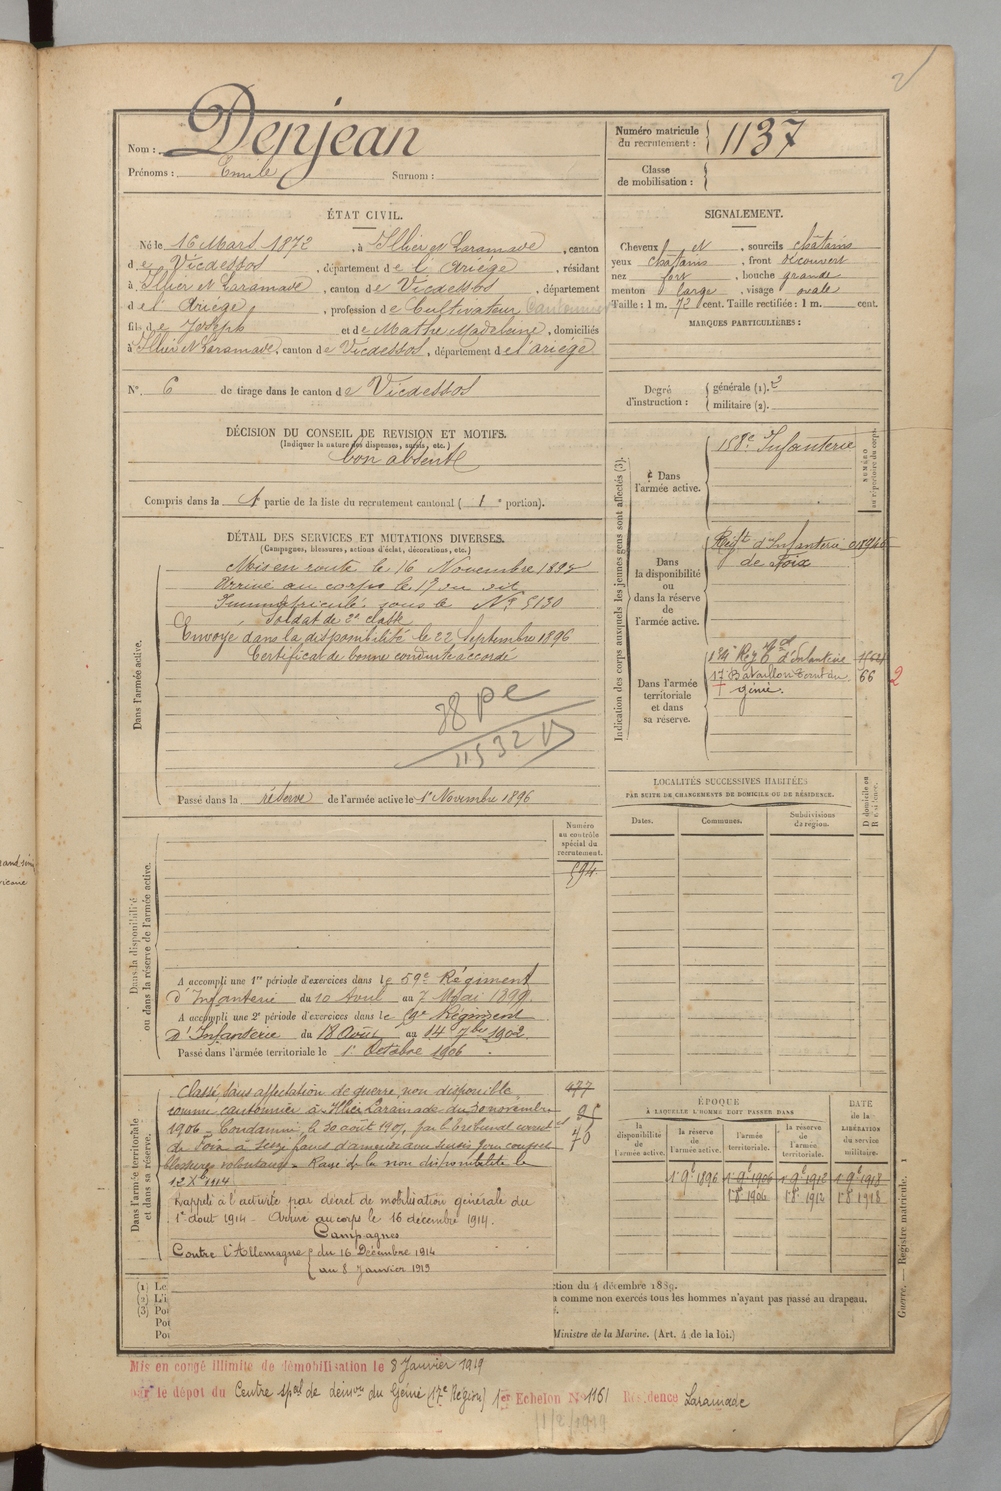 2
Nom : Denjean
Prénoms : Emile Surnom :
Numéro matricule du recrutement : 1137
Classe de mobilisation :
ÉTAT CIVIL.
Né le 16 Mars 1872, à Illier et Laramade, canton
de Vicdessos, département de l'Ariège, résidant
à Illier et Laramade, canton de Vicdessos, département
de l'Ariège, profession de Cultivateur Cantonnier
fils de Joseph et de Mathe Madeleine, domiciliés
à Illier et Laramade, canton de Vicdessos, département de l'ariège.
SIGNALEMENT.
Cheveux et, sourcils châtains
yeux châtains, front découvert
nez fort, bouche grande
menton large, visage ovale
Taille : 1 m. 72 cent. Taille rectifiée : 1 m. cent.
MARQUES PARTICULIÈRES :
N° 6 de tirage dans le canton de Vicdessos
Degré d'instruction : générale (1). 2
militaire (2).
DÉCISION DU CONSEIL DE REVISION ET MOTIFS.
(Indiquer la nature des dispenses, sursis, etc.)
bon absent
Compris dans la 1e partie de la liste du recrutement cantonal ( 1e portion).
DÉTAIL DES SERVICES ET MUTATIONS DIVERSES.
(Campagnes, blessures, actions d'éclat, décorations, etc.)
Dans l'armée active.
Mis en route le 16 Novembre 1893
Arrivé au corps le 17 du dit
Immatriculé sous le N° 5130
Soldat de 2e classe
Envoyé dans la disponibilité le 22 Septembre 1896
Certificat de bonne conduite accordé
Passé dans la réserve de l'armée active le 1er Novembre 1896
Indication des corps auxquels les jeunes gens sont affectés (3).
NUMÉRO au répertoire du corps.
Dans l'armée active.
158e Infanterie
Dans la disponibilité ou dans la réserve de l'armée active.
Régt d'Infanterie
de Foix
Dans l'armée territoriale et dans sa réserve.
Régt d'Infanterie
17e Bataillon Territ. du 66 2
génie.
LOCALITÉS SUCCESSIVES HABITÉES
PAR SUITE DE CHANGEMENTS DE DOMICILE OU DE RÉSIDENCE.
Dates. Communes. Subdivisions de région. D domicile ou R résidence.
Dans la disponibilité ou dans la réserve de l'armée active.
Numéro au contrôle spécial du recrutement.
594
A accompli une 1re période d'exercices dans le 59e Régiment
d'Infanterie du 10 Avril au 7 Mai 1899.
A accompli une 2e période d'exercices dans le Régiment
d'Infanterie du 18 Août au 14 7bre 1902
Passé dans l'armée territoriale le 1er Octobre 1906.
Dans l'armée territoriale et dans sa réserve.
477
25
70
Classé sans affectation de guerre, non disponible,
comme cantonnier à Illier Laramade du 30 novembre
1906 - Condamné le 30 août 1907, par le tribunal correctel
de Foix à seize francs d'amende avec sursis pour coups et
blessures volontaires. Rayé de la non disponibilité le
12 Xbre 1914
Rappelé à l'activité par décret de mobilisation générale du
1er août 1914 - Arrivé au corps le 16 décembre 1914.
Campagnes
Contre l'Allemagne du 16 Décembre 1914
au 8 Janvier 1919
ÉPOQUE
À LAQUELLE L'HOMME DOIT PASSER DANS
la disponibilité de l'armée active. la réserve de l'armée active. l'armée territoriale. la réserve de l'armée territoriale.
DATE de la LIBÉRATION du service militaire.
1er 9e 1896 1er 9e 1906 1er 9e 1912 1er 9e 1918
1er 8e 1906 1er 8e 1912 1er 8e 1918
(1) Le
(2) L'i
(3) Pou
Pou
Pou
ction du 4 décembre 1889.
a comme non exercés tous les hommes n'ayant pas passé au drapeau.
Ministre de la Marine. (Art. 4 de la loi.)
Guerre. — Registre matricule. 1
Mis en congé illimité de démobilisation le 8 Janvier 1919
par le dépôt du Centre spal de démon du Génie (17e Région) 1er Echelon N° 1161 Résidence Laramade
11/2/1919